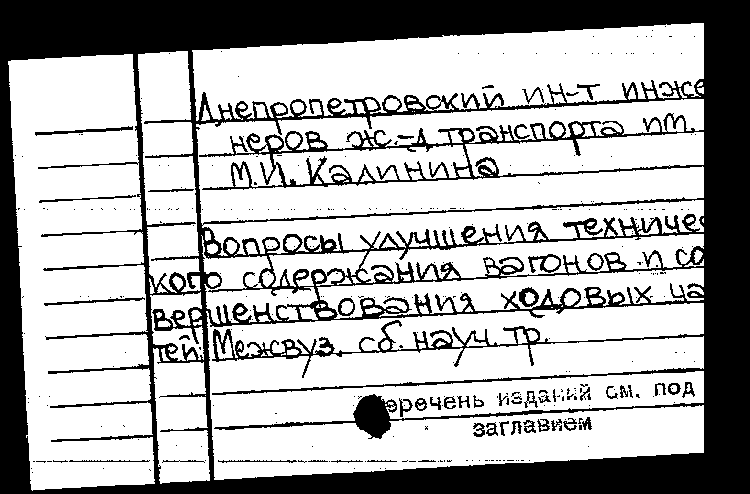 Днепропетровский ин-т инже
неров ж.-д транспорта им.
М.И. Калинина.
Вопросы улучшения техничес
кого содержания вагонов и со
вершенствования ходовых ча
тей: Межвуз. сб. науч. тр.
еречень изданий см. под
заглавием